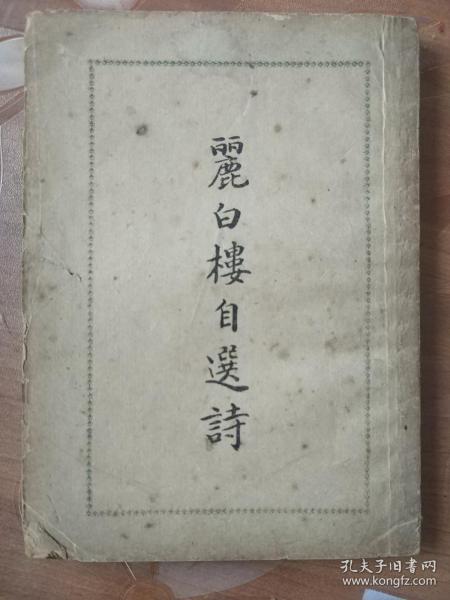 麗白樓自選詩
孔夫子旧书网
www.kongfz.com